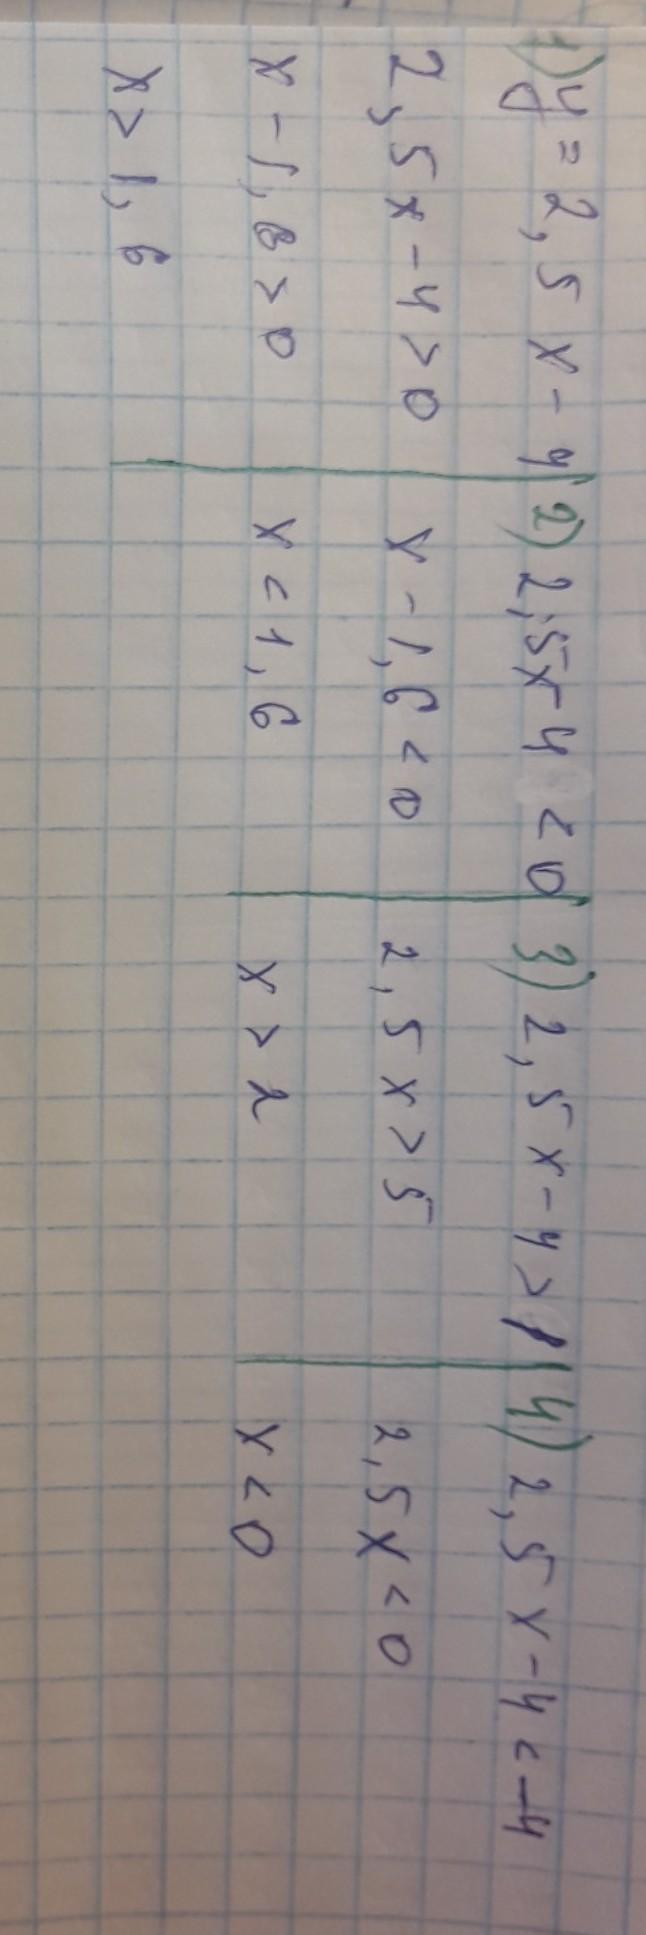 1) y = 2,5 x - 4
2,5 x - 4 > 0
x - 1,6 > 0
x > 1,6
2) 2,5x-4 < 0
x - 1,6 < 0
x < 1,6
3) 2,5 x - 4 > 1
2,5 x > 5
x > 2
4) 2,5 x - 4 < -4
2,5 x < 0
x < 0